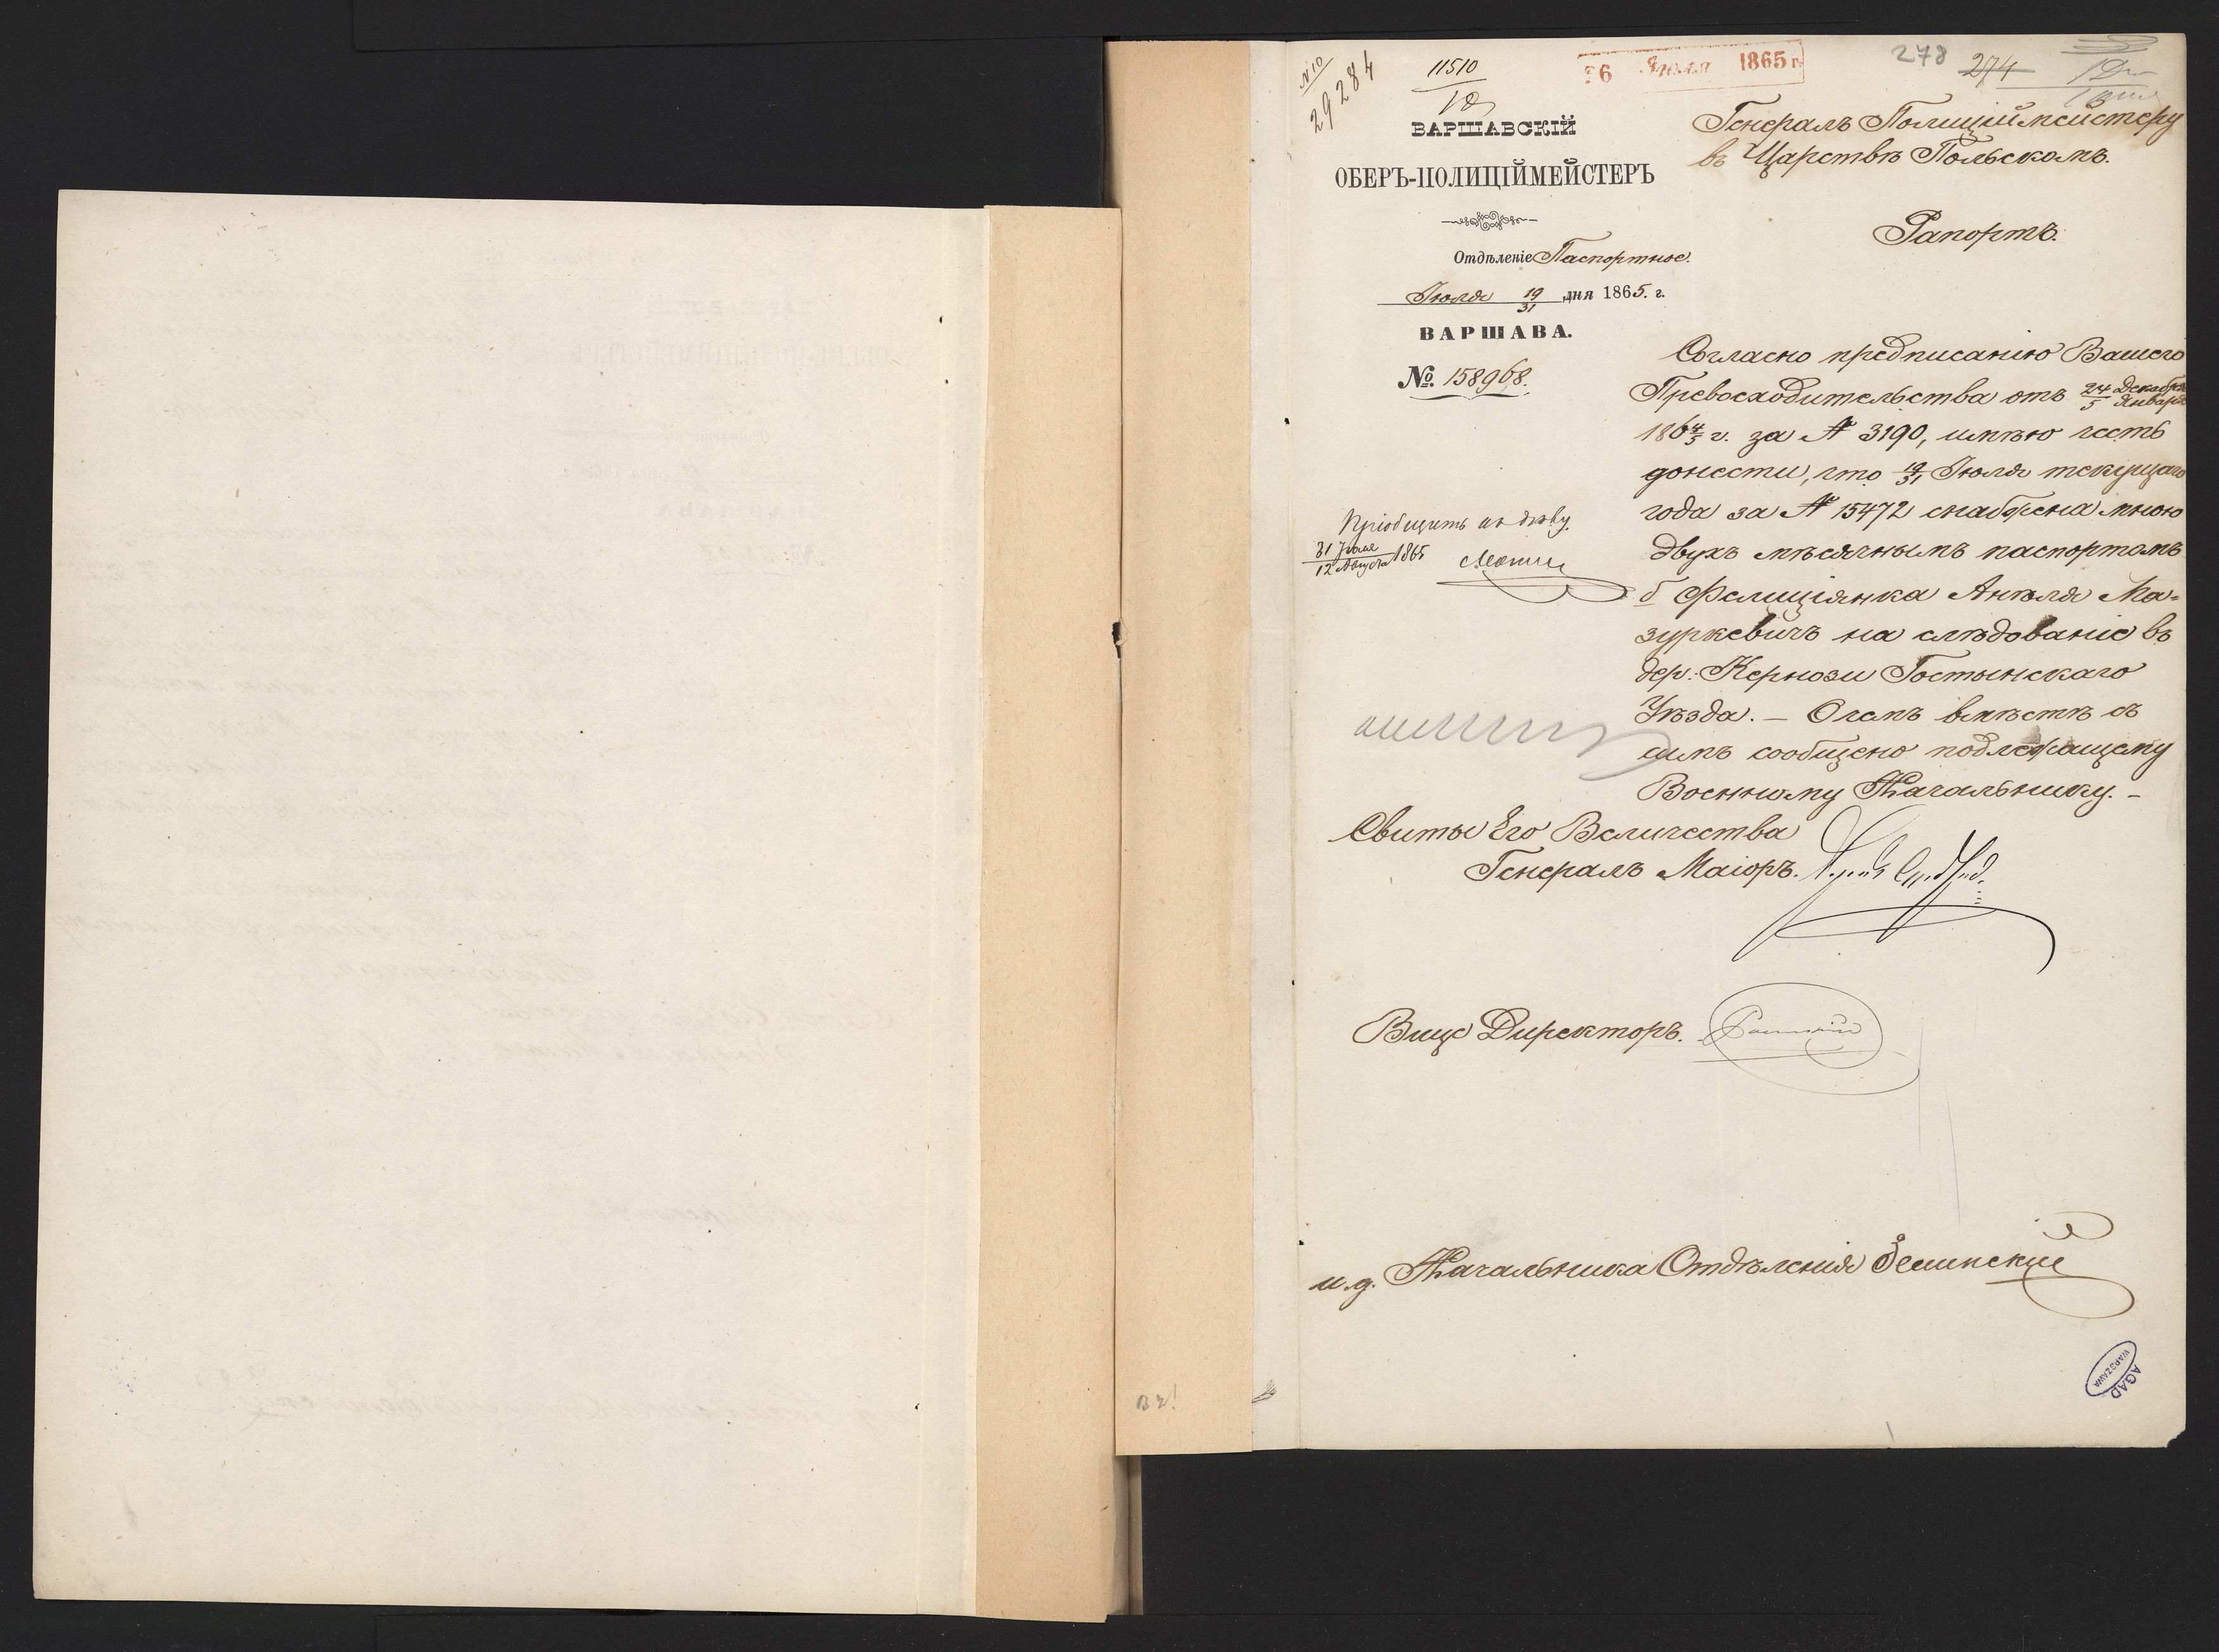 № 10
29284
11510
26 Июля 1865 г.
278 274
ВАРШАВСКІЙ
ОБЕРЪ-ПОЛИЦІЙМЕЙСТЕРЪ
Отдѣленіе Паспортное.
Іюля 19/31 дня 1865. г.
ВАРШАВА.
№ 158968.
Генералъ Полиціймейстеру
въ Царствѣ Польскомъ.
Рапортъ.
Согласно предписанію Вашего
Превосходительства отъ 24/5 Декабря/Января
1864/5 г. за № 3190, имѣю честь
донести, что 19/31 Іюля текущаго
года за № 15472 снабжена мною
двухъ мѣсячнымъ паспортомъ
б Фелиціянка Анѣля Ма-
зуркевичъ на слѣдованіе въ
дер: Кернози Гостынскаго
Уѣзда. — О чемъ вмѣстѣ съ
симъ сообщено подлежащему
Военному Начальнику. —
Пріобщить къ дѣлу.
31 Іюля/12 Августа 1865
Свиты Его Величества
Генералъ Маіоръ.
Вице Директоръ.
и. д. Начальника Отдѣленія
В 2!
AGAD
WARSZAWA